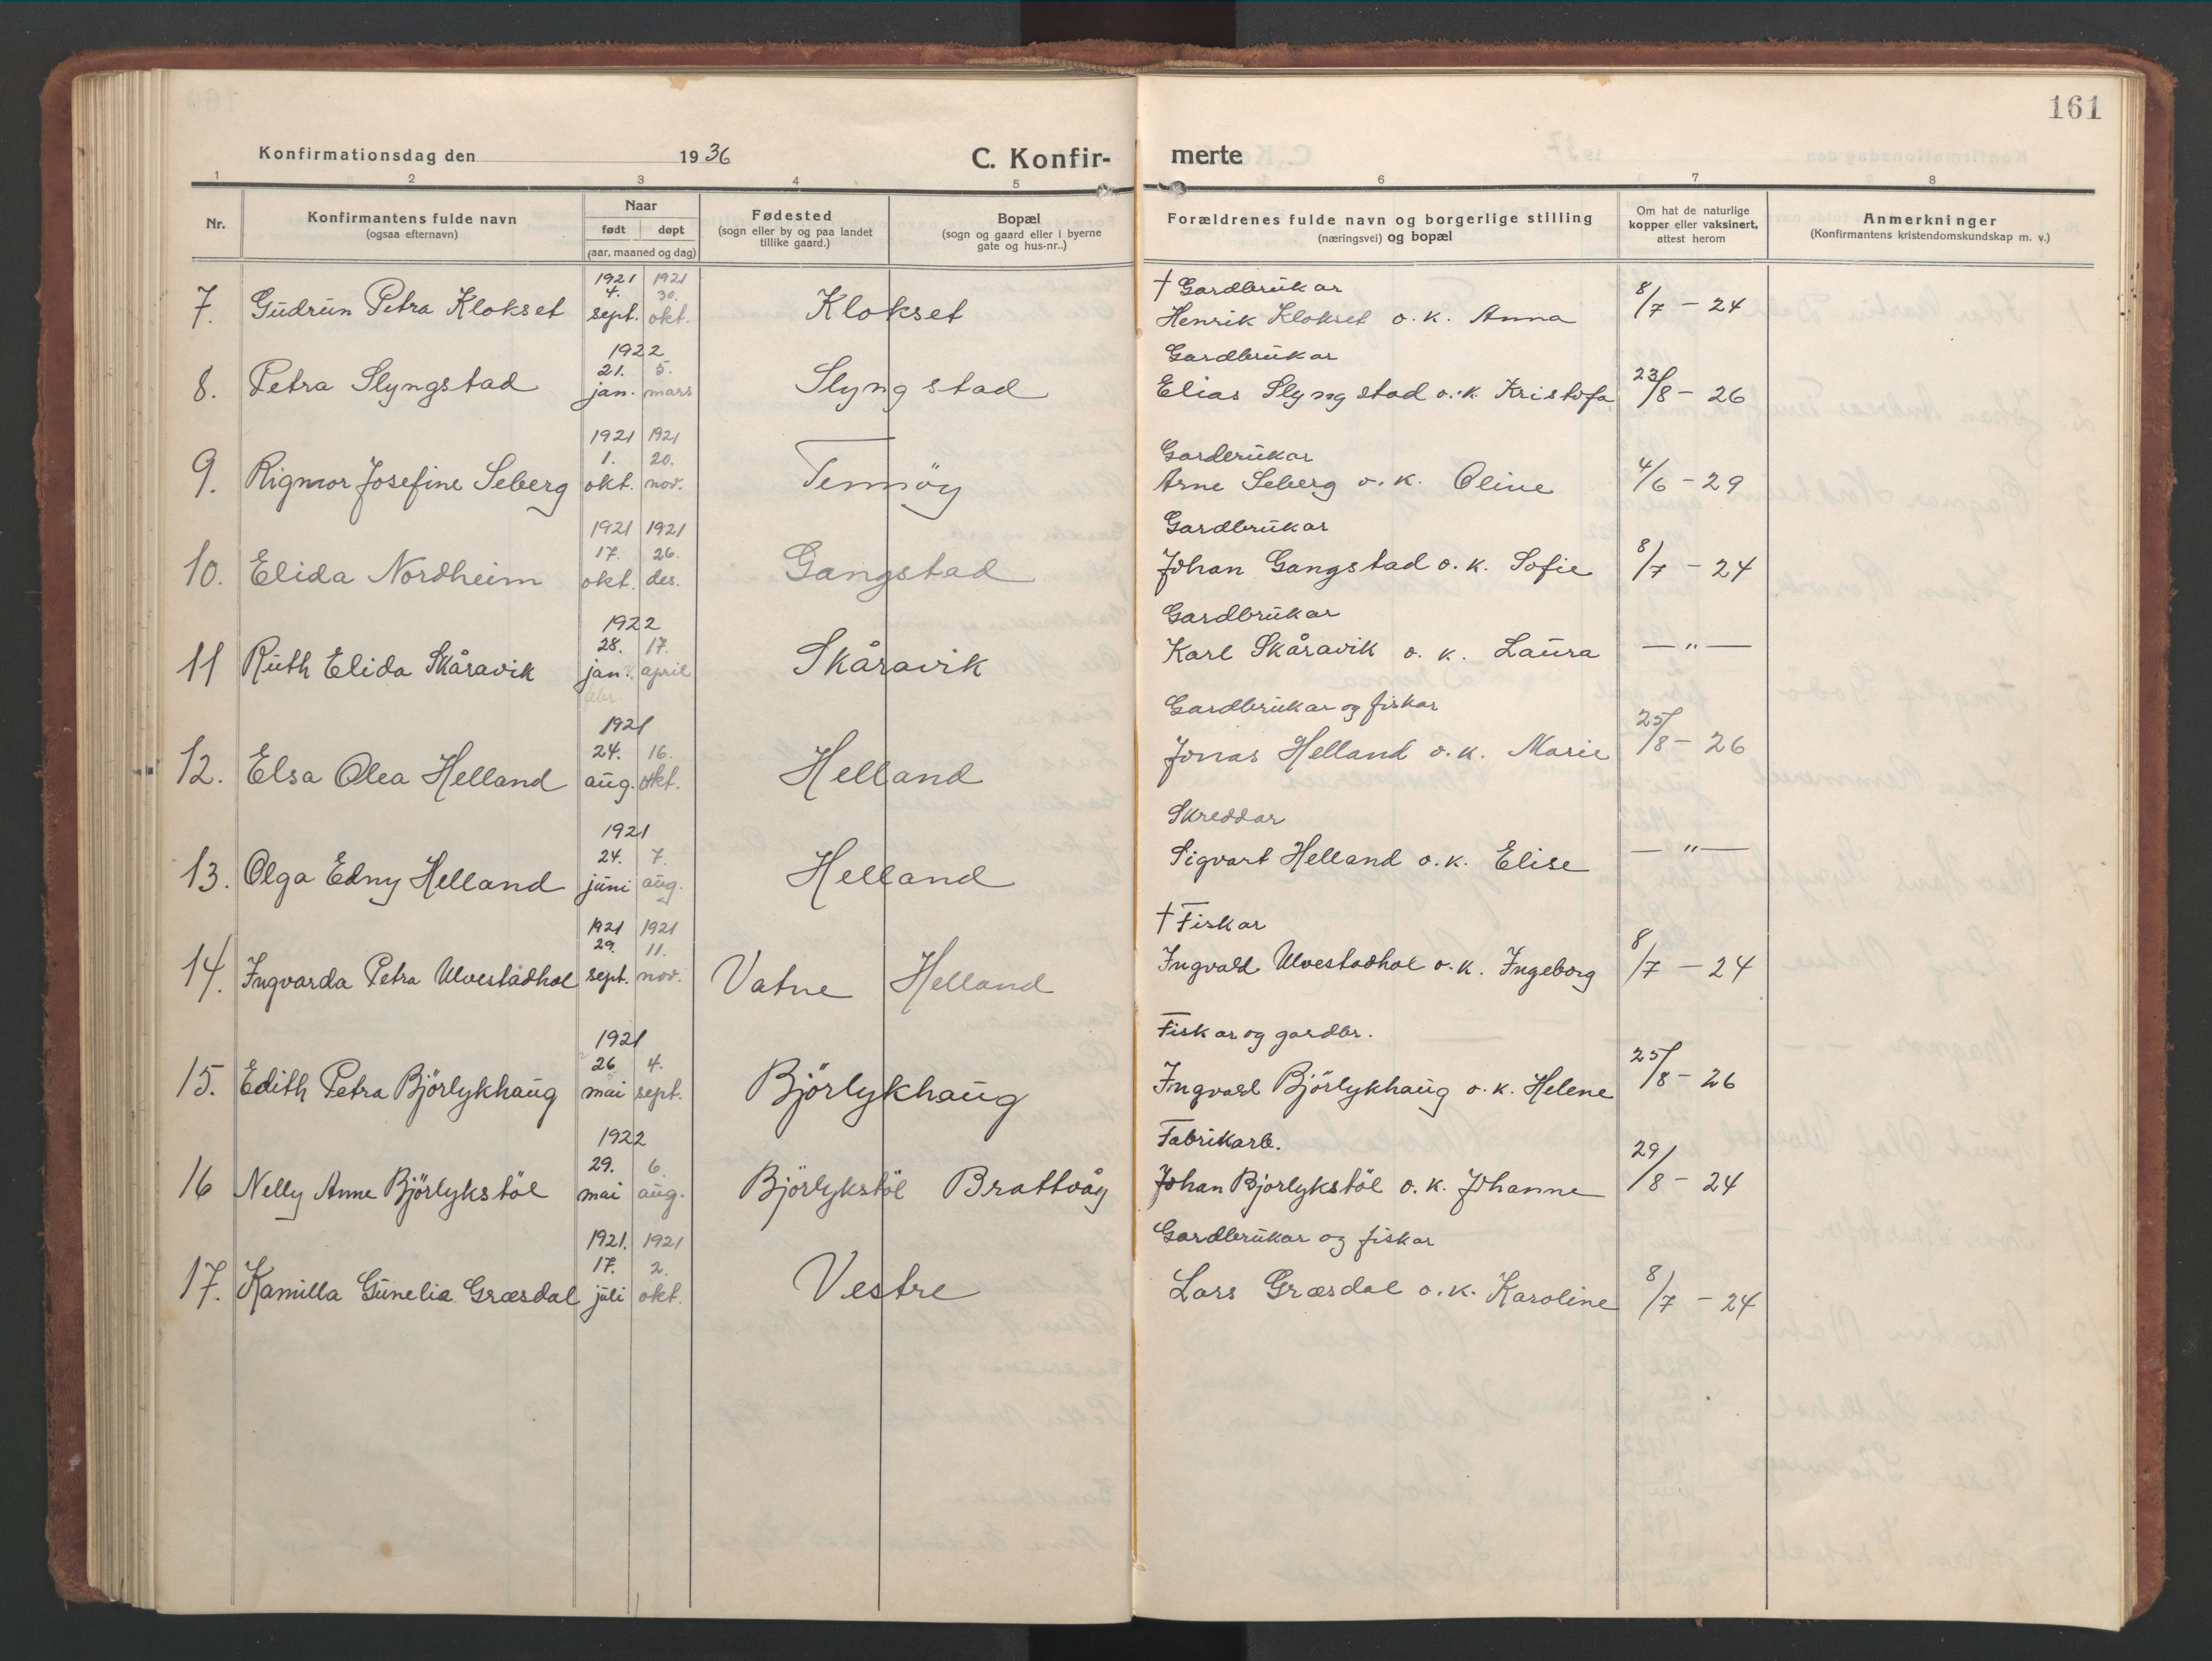 161
Konfirmationsdag den 1936 C. Konfir- merte
1 2 3 4 5 6 7 8
Nr. Konfirmantens fulde navn (ogsaa efternavn) Naar født døpt (aar, maaned og dag) Fødested (sogn eller by og paa landet tillike gaard.) Bopæl (sogn og gaard eller i byerne gate og hus-nr..) Forældrenes fulde navn og borgerlige stilling (næringsvei) og bopæl Om hat de naturlige kopper eller vaksinert, attest herom Anmerkninger (Konfirmantens kristendomskundskap m. v.)
1921 1921 † Gardbrukar
4. 30.
7. Gudrun Petra Klokset sept. okt. Klokset Henrik Klokset o. k. Anna 8/7 - 24
1922 Gardbrukar
21. 5.
8. Petra Slyngstad jan. mars Slyngstad Elias Slyngstad o. k. Kristofa 23/8 - 26
1921 1921 Garderukar
1. 20.
9. Rigmor Josefine Seberg okt. nov. Tennöy Arne Seberg o. k. Oline 4/6 - 29
1921 1921 Gardbrukar
17. 26.
10. Elida Nordheim okt. des. Gangstad Johan Gangstad o. k. Sofie 8/7 - 24
1922 Gardbrukar
28. 17.
11 Ruth Elida Skåravik jan. april Skåravik Karl Skåravik o. k. Laura — „ —
febr.
1921 Gardbrukar og fiskar
24. 16.
12. Elsa Olea Helland aug. okt. Helland Jonas Helland o. k. Marie 25/8 - 26
1921 Skreddar
24. 7.
13. Olga Edny Helland juni aug. Helland Sigvart Helland o. k. Elise — „ —
1921 1921 † Fiskar
29. 11.
14. Ingvarda Petra Ulvestadhol sept. nov. Vatne Helland Ingvald Ulvestadhol o. k. Ingeborg 8/7 - 24
1921 Fiskar og gardbr.
26 4.
15. Edith Petra Björlykhaug mai sept. Björlykhaug Ingvald Björlykhaug o. k. Helene 25/8 - 26
1922 Fabrikarb.
29. 6.
16 Nelly Anne Björlykstöl mai aug. Björlykstöl Brattvåg Johan Bjorlykstöl o. k. Johanne 29/8 - 24
1921. 1921 Gardbrukar og fiskar
17. 2.
17. Kamilla Gunelia Græsdal juli okt. Vestre Lars Græsdal o. k. Karoline 8/7 - 24